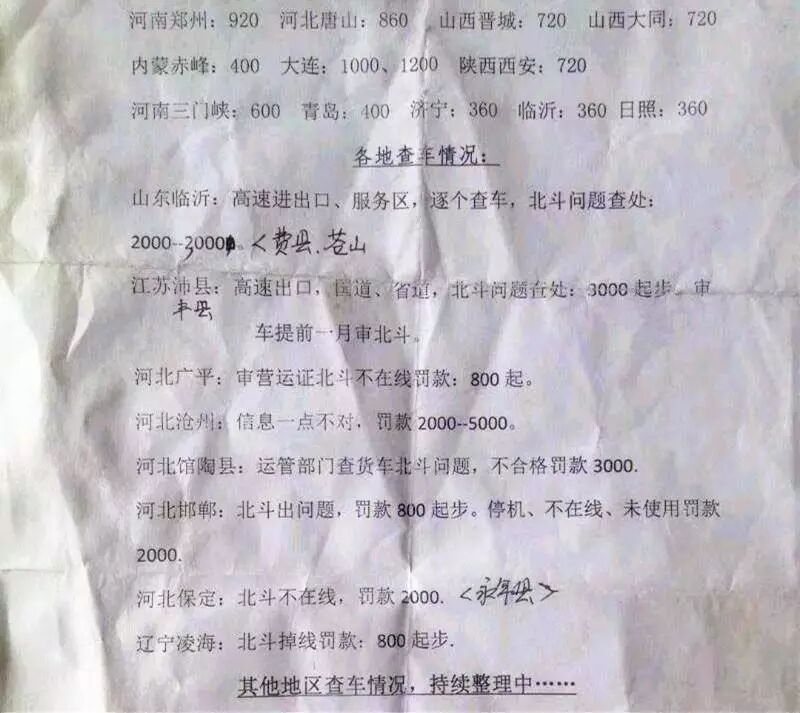 河南郑州：920 河北唐山：860 山西晋城：720 山西大同：720
内蒙赤峰：400 大连：1000、1200 陕西西安：720
河南三门峡：600 青岛：400 济宁：360 临沂：360 日照：360
各地查车情况：
山东临沂：高速进出口、服务区，逐个查车，北斗问题查处：
2000--3000。<费县、苍山
江苏沛县：高速出口，国道、省道，北斗问题查处：3000 起步。审
丰县
车提前一月审北斗。
河北广平：审营运证北斗不在线罚款：800 起。
河北沧州：信息一点不对，罚款 2000--5000。
河北馆陶县：运管部门查货车北斗问题，不合格罚款 3000.
河北邯郸：北斗出问题，罚款 800 起步。停机、不在线、未使用罚款
2000.
河北保定：北斗不在线，罚款 2000. <永年县>
辽宁凌海：北斗掉线罚款：800 起步.
其他地区查车情况，持续整理中……